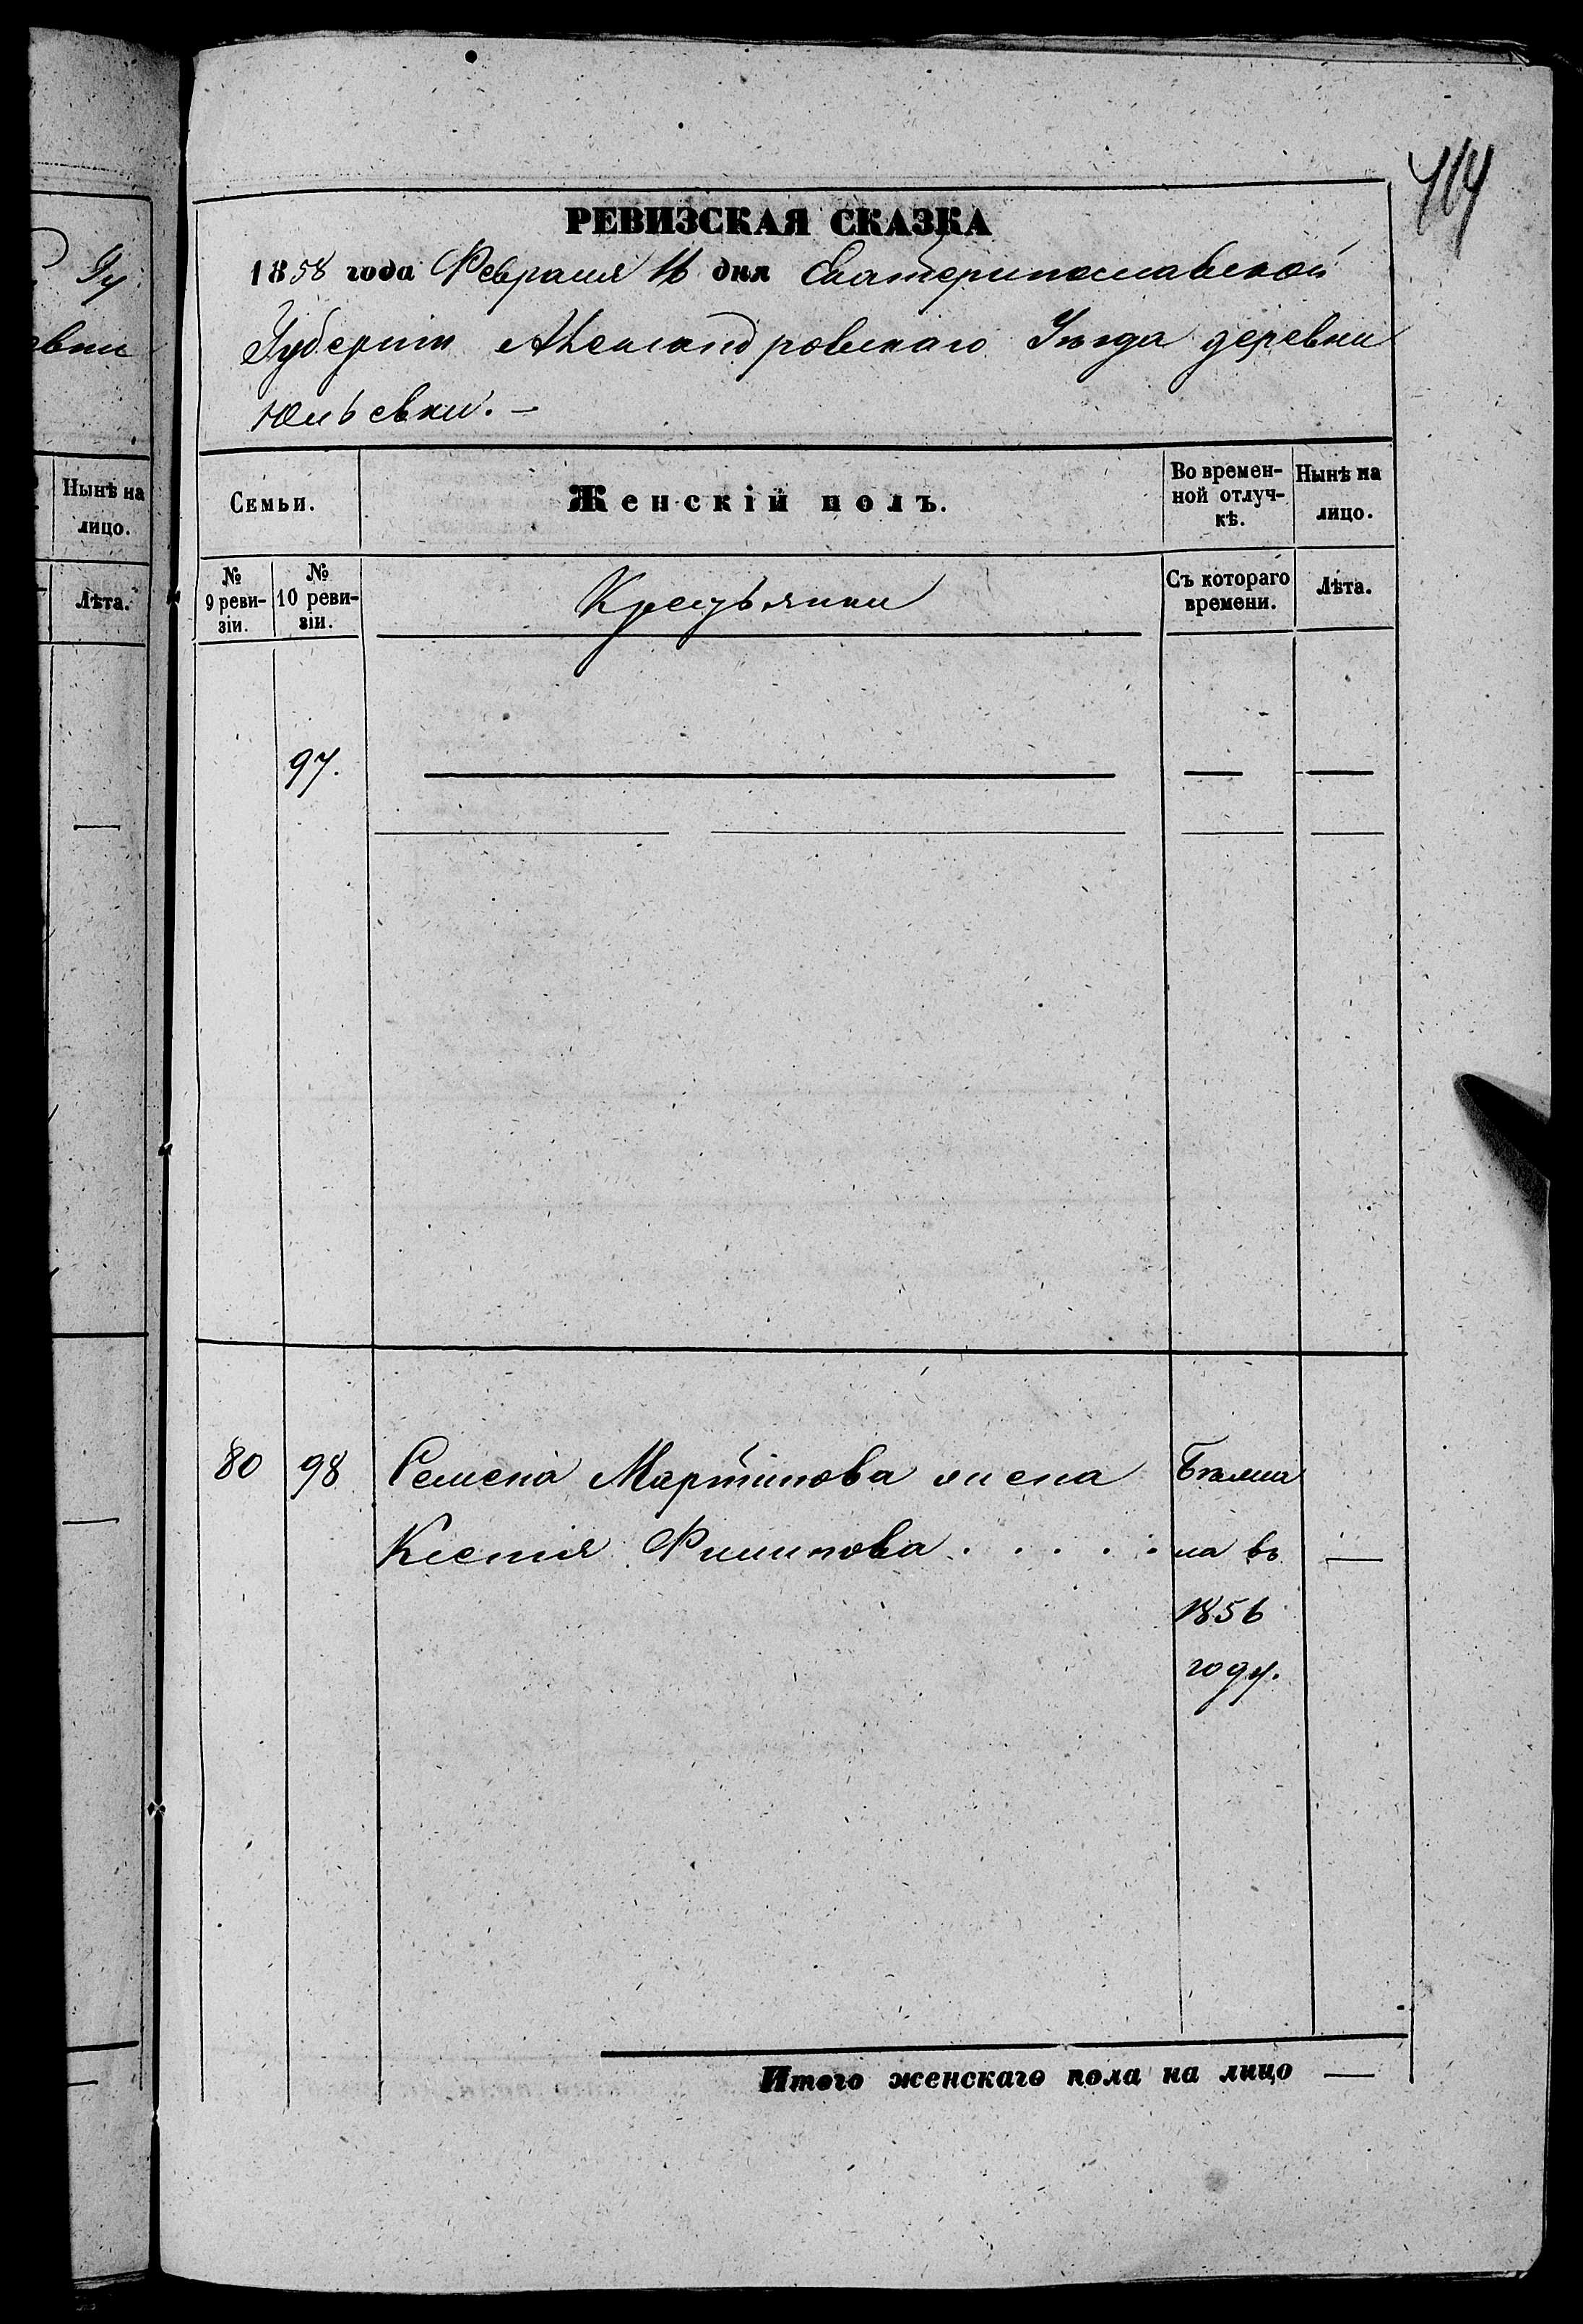 114
РЕВИЗСКАЯ СКАЗКА
1858 года Февраля 16 дня Екатеринославской
Губерніи Александровскаго Уѣзда деревни
Юльевки. —
Семьи.
Женскій полъ.
Во времен-
ной отлуч-
кѣ.
Нынѣ на
лицо.
№
9 реви-
зіи.
№
10 реви-
зіи.
Крестьянки
Съ котораго
времени.
Лѣта.
97. — — —
80 98 Семена Мартинова жена Бѣжла
Ксенія Филипова . . . . . ла въ —
1856
году.
Итого женскаго пола на лицо —
Гу
евки
Нынѣ на
лицо.
Лѣта.